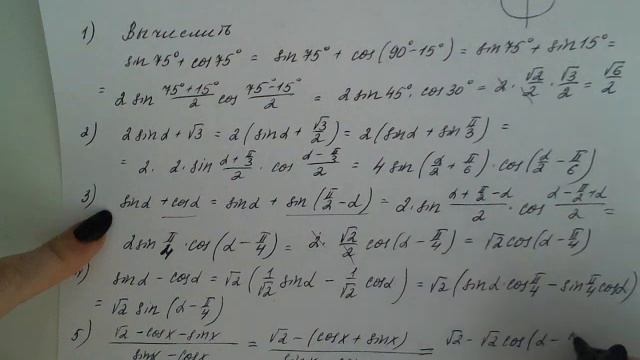 1) Вычислить
sin 75° + cos 75° = sin 75° + cos (90° - 15°) = sin 75° + sin 15° =
= 2 sin (75° + 15°)/2 cos (75° - 15°)/2 = 2 sin 45° · cos 30° = 2 · √2/2 · √3/2 = √6/2
2) 2 sin α + √3 = 2 (sin α + √3/2) = 2 (sin α + sin π/3) =
= 2 · 2 · sin (α + π/3)/2 · cos (α - π/3)/2 = 4 sin (α/2 + π/6) · cos (α/2 - π/6)
3) sin α + cos α = sin α + sin (π/2 - α) = 2 · sin (α + π/2 - α)/2 · cos (α - π/2 + α)/2 =
2 sin π/4 · cos (α - π/4) = 2 · √2/2 cos (α - π/4) = √2 cos (α - π/4)
) sin α - cos α = √2 (1/√2 sin α - 1/√2 cos α) = √2 (sin α cos π/4 - sin π/4 cos α)
= √2 sin (α - π/4)
5) (√2 - cos x - sin x)/(sin x - cos x) = √2 - (cos x + sin x) = √2 - √2 cos (α -